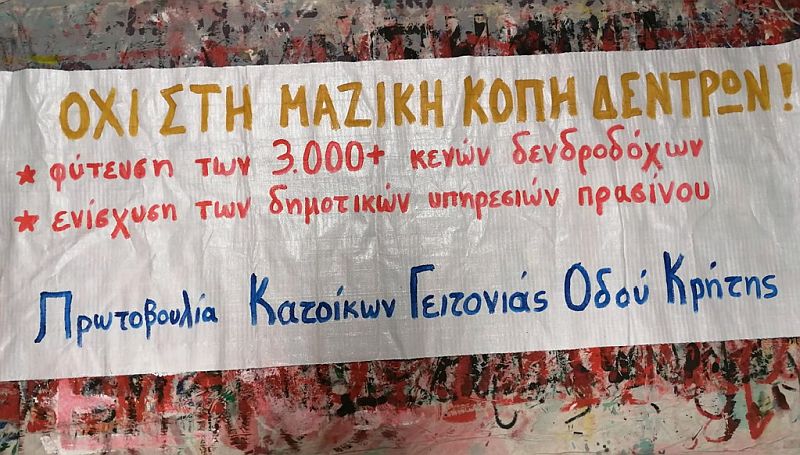 ΟΧΙ ΣΤΗ ΜΑΖΙΚΗ ΚΟΠΗ ΔΕΝΤΡΩΝ!
* φύτευση των 3.000+ κενών δενδροδόχων
* ενίσχυση των δημοτικών υπηρεσιών πρασίνου
Πρωτοβουλία Κατοίκων Γειτονιάς Οδού Κρήτης